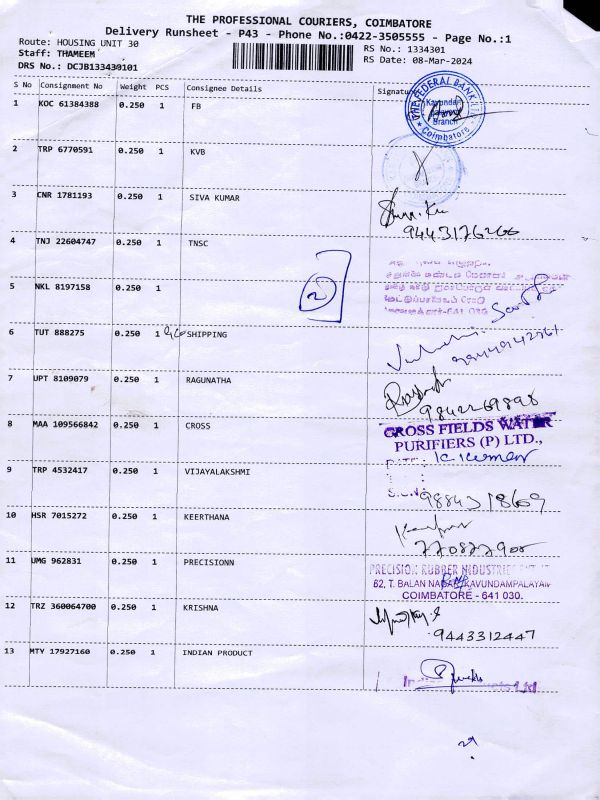 THE PROFESSIONAL COURIERS, COIMBATORE
Delivery Runsheet - P43 - Phone No.:0422-3505555 - Page No.:1
Route: HOUSING UNIT 30
Staff: THAMEEM
DRS No.: DCJB133430101
RS No.: 1334301
RS Date: 08-Mar-2024
S No Consignment No Weight PCS Consignee Details Signatu
1 KOC 61384388 0.250 1 FB
THE FEDERAL BANK LTD
Branch
Coimbatore
2 TRP 6770591 0.250 1 KVB
3 CNR 1781193 0.250 1 SIVA KUMAR
9443176266
4 TNJ 22604747 0.250 1 TNSC
5 NKL 8197158 0.250 1
2
6 TUT 888275 0.250 1 SHIPPING
7 UPT 8109079 0.250 1 RAGUNATHA
9842269898
8 MAA 109566842 0.250 1 CROSS
CROSS FIELDS WATER
PURIFIERS (P) LTD.,
DATE: K. Kumar
9 TRP 4532417 0.250 1 VIJAYALAKSHMI
9884318609
10 HSR 7015272 0.250 1 KEERTHANA
11 UMG 962831 0.250 1 PRECISIONN
PRECISION RUBBER INDUSTRIES
62, T. BALAN NAGAR, KAVUNDAMPALAYAM
COIMBATORE - 641 030.
12 TRZ 360064700 0.250 1 KRISHNA
9443312447
13 MTY 17927160 0.250 1 INDIAN PRODUCT